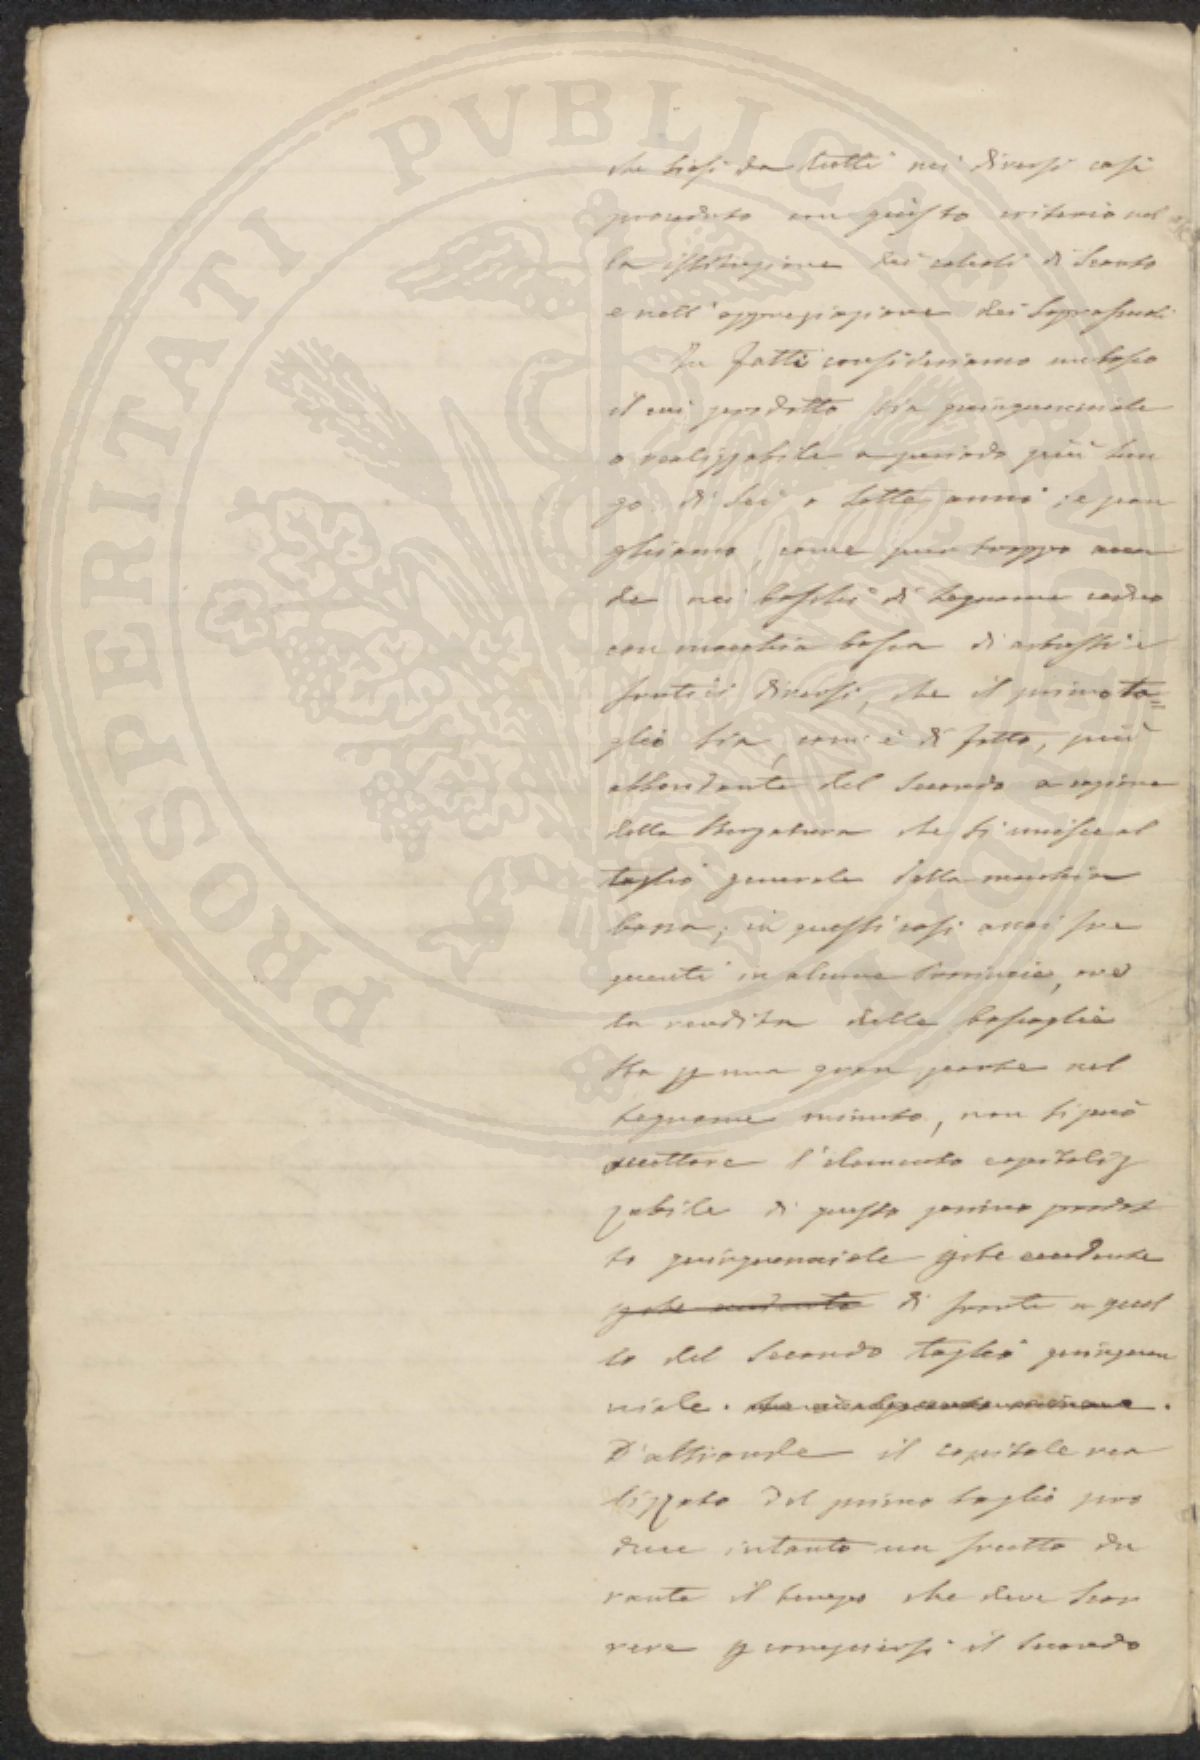 PROSPERITATI PUBLICAE AUGENDAE
che siasi da tutti nei diversi casi
proceduto con questo criterio nel
la istituzione dei calcoli di sconto
e nell'aggregazione dei soprasuoli
In fatti consideriamo un bosco
il cui prodotto sia quinquennale
o realizzabile a periodo più lun
go di sei o sette anni e pon
ghiamo, come pur troppo acca
de nei boschi di legname ceduo
con macchia bassa di arbusti e
frutici diversi, che il primo ta=
glio sia, com'è di fatto, più
abbondante del secondo a cagione
della sterzatura che si unisce al
taglio generale della macchia
bassa; in questi casi assai fre
quenti in alcune Provincie, ove
la rendita delle boscaglie
sta p una gran parte nel
legname minuto, non si può
accettare l'elemento capitaliz
zabile di questo primo prodot
to quinquennale che eccedente
di fronte a quel
lo del secondo taglio quinquen
niale.
D'altronde il capitale rea
lizzato dal primo taglio pro
duce intanto un frutto du
rante il tempo che deve scor
rere p compiersi il secondo